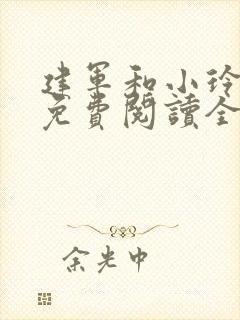 建军和小玲
免費閱讀全
余光中